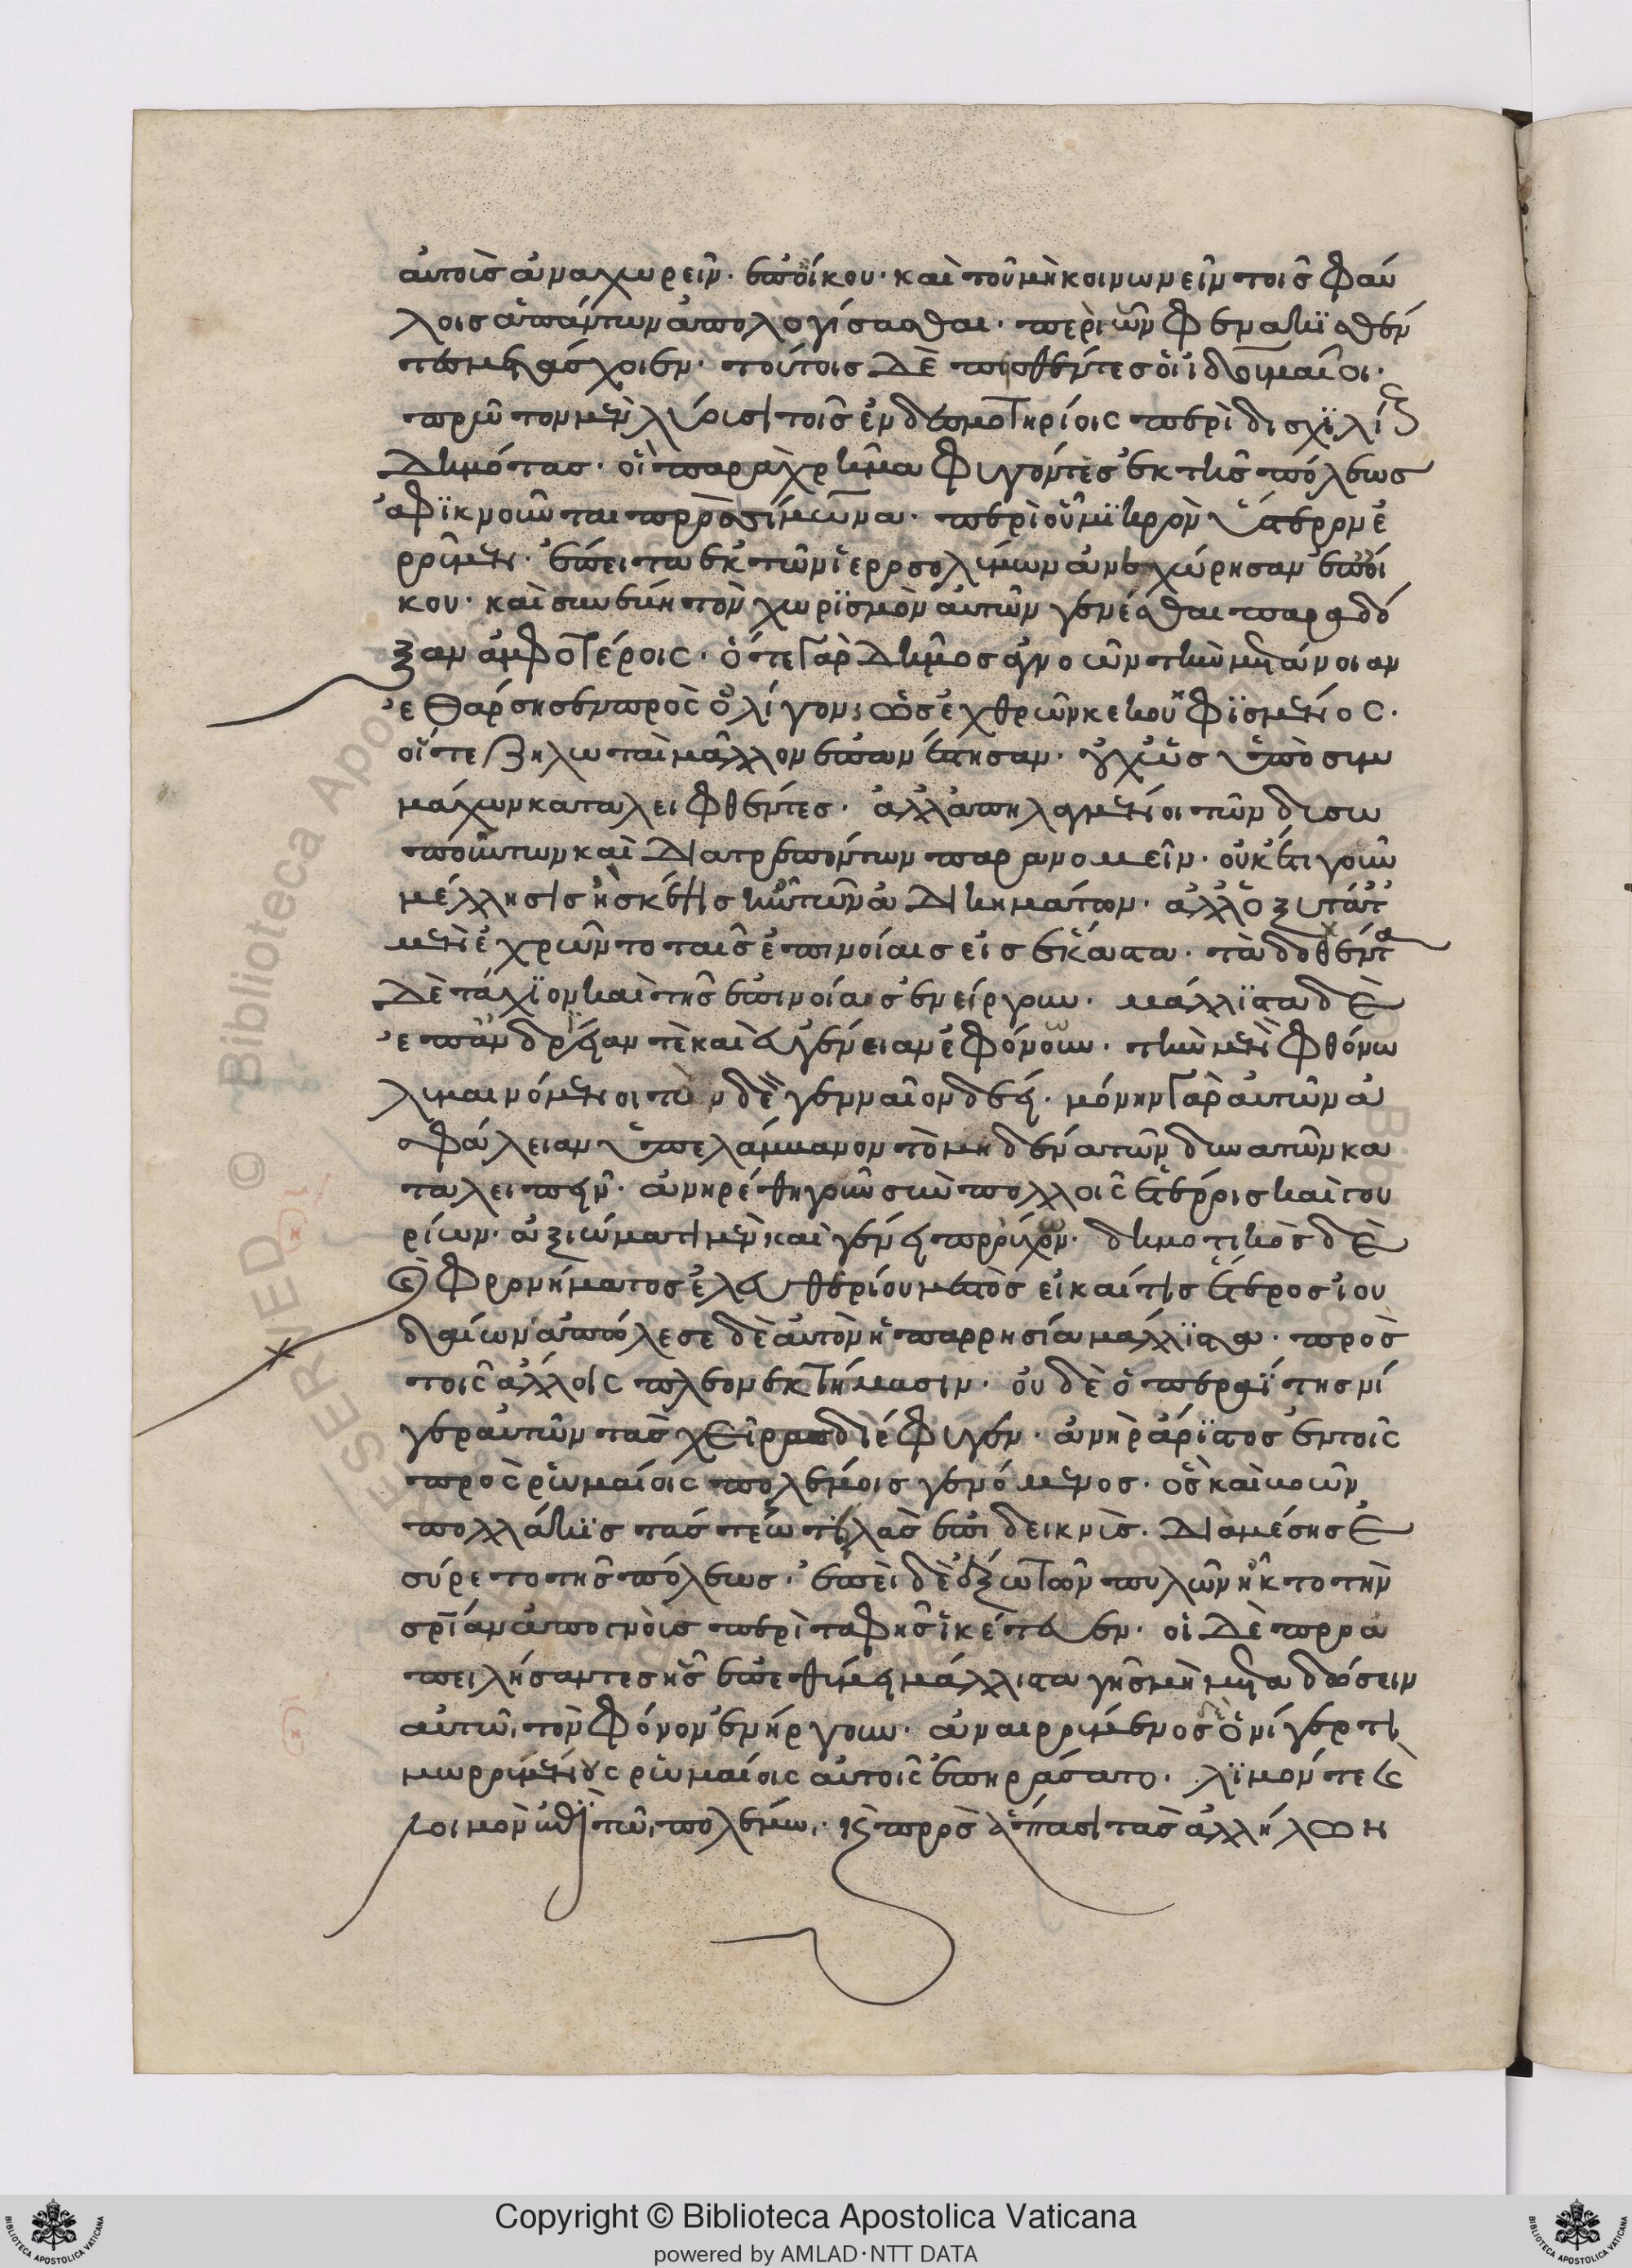 αὐτοῖς ἀναχωρεῖν ἐπ οἴκου· καὶ τοῦ μὴ κοινωνεῖν τοῖς φαύ
λοις ἁπάντων ἀπολογίσασθαι· περὶ ὧν φενακισθέν
τες μετάσχοιεν· τούτοις δὲ πεισθέντες οἱ ἰδουμαῖοι·
πρῶτον μὲν λύουσι τοὺς ἐν δεσμωτηρίοις περὶ δισχιλίους
δημότας· οἳ παραχρῆμα φυγόντες ἐκ τῆς πόλεως
ἀφικνοῦνται πρὸς σίμωνα· περὶ οὗ μικρὸν ὕστερον ἐ
ροῦμεν· ἔπειτα ἐκ τῶν ἱεροσολύμων ἀνεχώρησαν ἐπ οἴ
κου· καὶ συνέβη τὸν χωρισμὸν αὐτῶν γενέσθαι παράδο
ξον ἀμφοτέροις· ὅ τε γὰρ δῆμος ἀγνοῶν τὴν μετάνοιαν
ἐθάρσησεν πρὸς ὀλίγον ὡς ἐχθρῶν κεκουφισμένος·
οἵ τε ζηλωταὶ μᾶλλον ἐπανέστησαν· οὐχ ὡς ὑπὸ συμ
μάχων καταλειφθέντες· ἀλλ ἀπηλλαγμένοι τῶν δυσω
πούντων καὶ διατρεπόντων παρανομεῖν· οὐκέτι γοῦν
μέλλησις ἢ σκέψις ἦν τῶν ἀδικημάτων· ἀλλ ὀξυτάτ
μὲν ἐχρῶντο ταῖς ἐπινοίαις εἰς ἕκαστα· τὰ δοχθέντα
δὲ τάχιον καὶ τῆς ἐπινοίας ἐνείργουν· μάλιστα δὲ
ἐπ ἀνδρείαν τε καὶ εὐγένειαν ἐφόνουν· τὴν μὲν φθόνω
λυμαινόμενοι τὸ δὲ γενναῖον δέει· μόνην γὰρ αὐτῶν ἀ
σφάλειαν ὑπελάμβανον τὸ μηδένα τῶν δυνατῶν κα
ταλειπεῖν· ἀνηρέθη γοῦν σὺν πολλοῖς ἑτέροις καὶ γου
ρίων· ἀξιώματι μὲν καὶ γένει προύχων· δημοτικὸς δὲ
καὶ φρονήματος ἐλευθερίου μεστὸς εἰ καί τις ἕτερος ἰου
δαίων ἀπώλεσε δὲ αὐτὸν ἡ παρρησία μάλιστα· πρὸς
τοῖς ἄλλοις πλεονεκτήμασιν· οὐδὲ ὁ περαΐτης νί
γερ αὐτῶν τὰς χεῖρας διέφυγεν· ἀνὴρ ἄριστος ἐν τοῖς
πρὸς ῥωμαίοις πολέμοις γενόμενος· ὃς καὶ βοῶν
πολλάκις τάς τε ὠτειλὰς ἐπιδεικνὺς· διὰ μέσης ἐ
σύρετο τῆς πόλεως· ἐπεὶ δὲ ἔξω τῶν πυλῶν ἦκτο τὴν
σωτηρίαν ἀπογνοὺς περὶ ταφῆς ἱκέτευεν· οἱ δὲ προα
πειλήσαντες ἧς ἐπεθύμει μάλιστα γῆς μὴ μεταδώσειν
αὐτῶ, τὸν φόνον ἐνήργουν· ἀναιρούμενος δὲ ὁ νίγερ τι
μωροὺς ῥωμαίους αὐτοῖς ἐπηράσατο· λιμόν τε καὶ
λοιμὸν ἐπὶ τῶ, πολέμω,· καὶ πρὸς ἅπασι τὰς ἀλλήλων